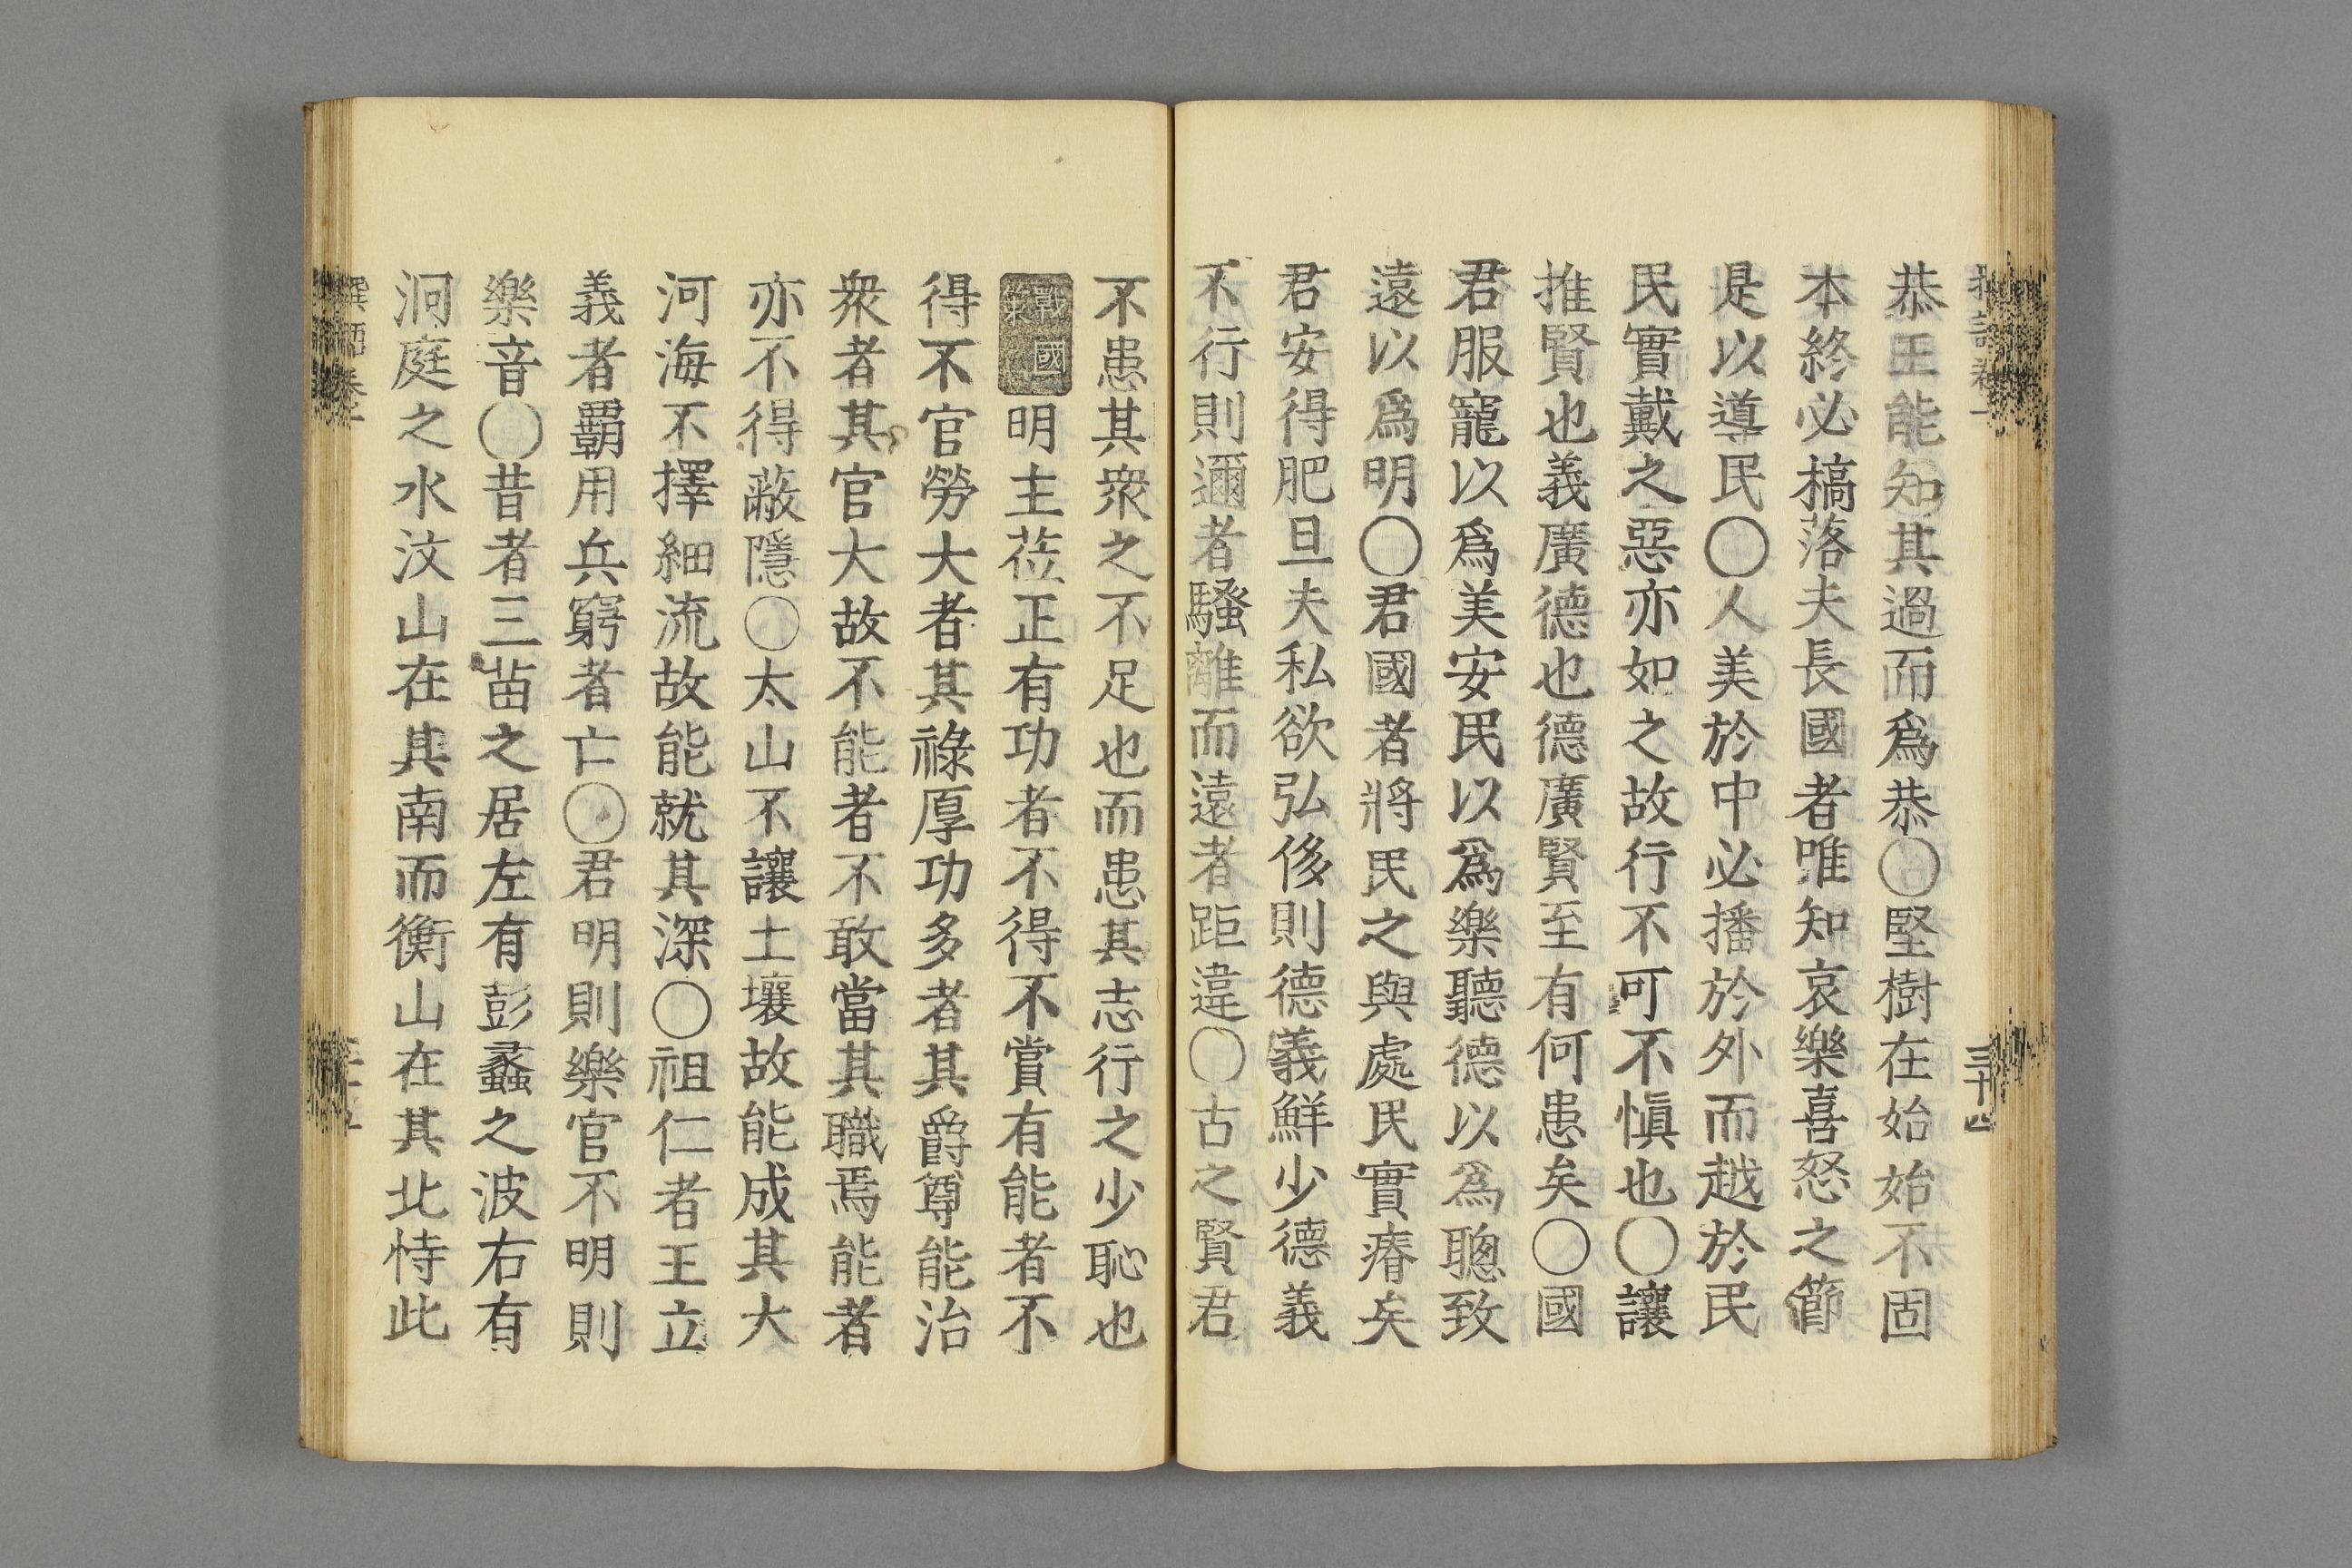 恭王能知其過而爲恭〇堅樹在始始不固
本終必槁落夫長國者唯知哀樂喜怒之節
是以導民〇人美於中必播於外而越於民
民實戴之惡亦如之故行不可不愼也〇讓
推賢也義廣德也德廣賢至有何患矣〇國
君服寵以爲美安民以爲樂聽德以爲聰致
遠以爲明〇君國者將民之與處民實瘠矣
君安得肥旦夫私欲弘侈則德義鮮少德義
不行則邇者騷離而遠者距違〇古之賢君
三十四
不患其衆之不足也而患其志行之少恥也
戰國策明主莅正有功者不得不賞有能者不
得不官勞大者其祿厚功多者其爵尊能治
衆者其官大故不能者不敢當其職焉能者
亦不得蔽隱〇太山不讓土壤故能成其大
河海不擇細流故能就其深〇祖仁者王立
義者霸用兵窮者亡〇君明則樂官不明則
樂音〇昔者三苗之居左有彭蠡之波右有
洞庭之水汶山在其南而衡山在其北恃此